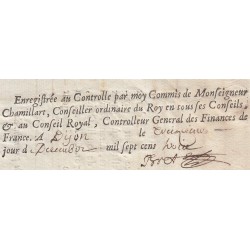 Enregistrée au Controlle par moy Commis de Monseigneur
Chamillart, Conseiller ordinaire du Roy en tous ses Conseils,
& au Conseil Royal, Controlleur General des Finances de
France. A Lyon le
jour de Decembre mil sept cens